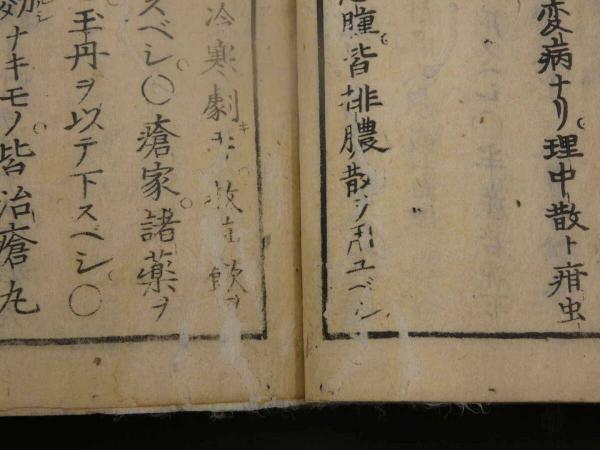 変病ナリ理中散ト疳虫
腫皆排膿散ヲ用ユベシ
冷寒劇キ
スベシ○瘡家諸薬ヲ
玉丹ヲ以テ下スベシ○
効ナキモノ皆治瘡丸